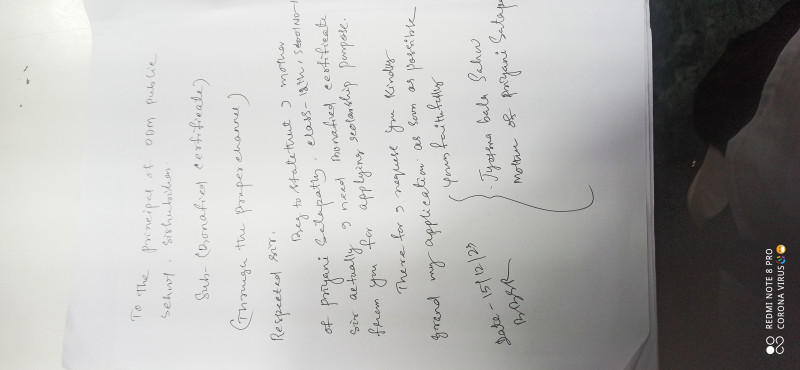 To The principal of ODM public
school, sishubihan.
Sub- (Bonafied certificate)
(Through the proper channel)
Respected sir.
Beg to state that I mother
of priyani Satapathy. class- 12th, School No-1
sir actually I need Bonafied certificate
from you for applying scolarship purpose.
There for I request you kindly
grand my application as soon as possible
Yours faithfully
Jyotsna bala Sahu
Mother of priyani Satapa
Date - 15/12/23
REDMI NOTE 8 PRO
CORONA VIRUS